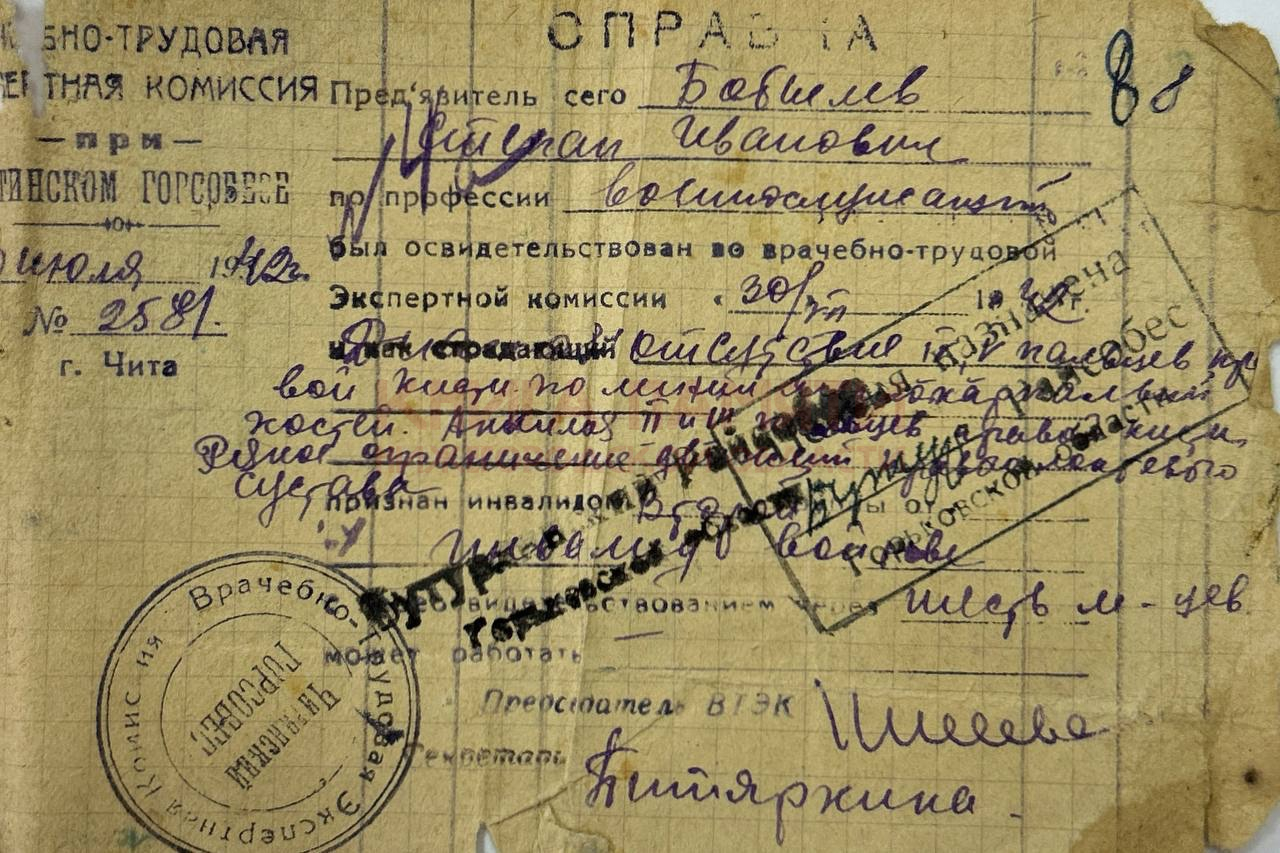 СПРАВКА
БНО-ТРУДОВАЯ
ТНАЯ КОМИССИЯ
— при —
ТИНСКОМ ГОРСОБЕСЕ
июля 1942г.
№ 2581.
г. Чита
8 8
Пред'явитель сего Бобылев
Степан Иванович
по профессии военнослужащий
был освидетельствован во врачебно-трудовой
Экспертной комиссии „30/VII 1942г.
и как страдающий отсутствие IV, V пальцев пра
вой кисти по линии
костей. Анкилоз II и III пальцев правой кисти,
Резкое ограничение движений
сустава
признан инвалидом Второй
Инвалид войны
освидетельствованием через шесть м-цев
может работать —
Председатель ВТЭК
Секретарь
Врачебно-Трудовая Экспертная Комиссия
ЧИТИНСКИЙ
ГОРСОБЕС
назначена
райсобес
Горьковской области
Горьковской области